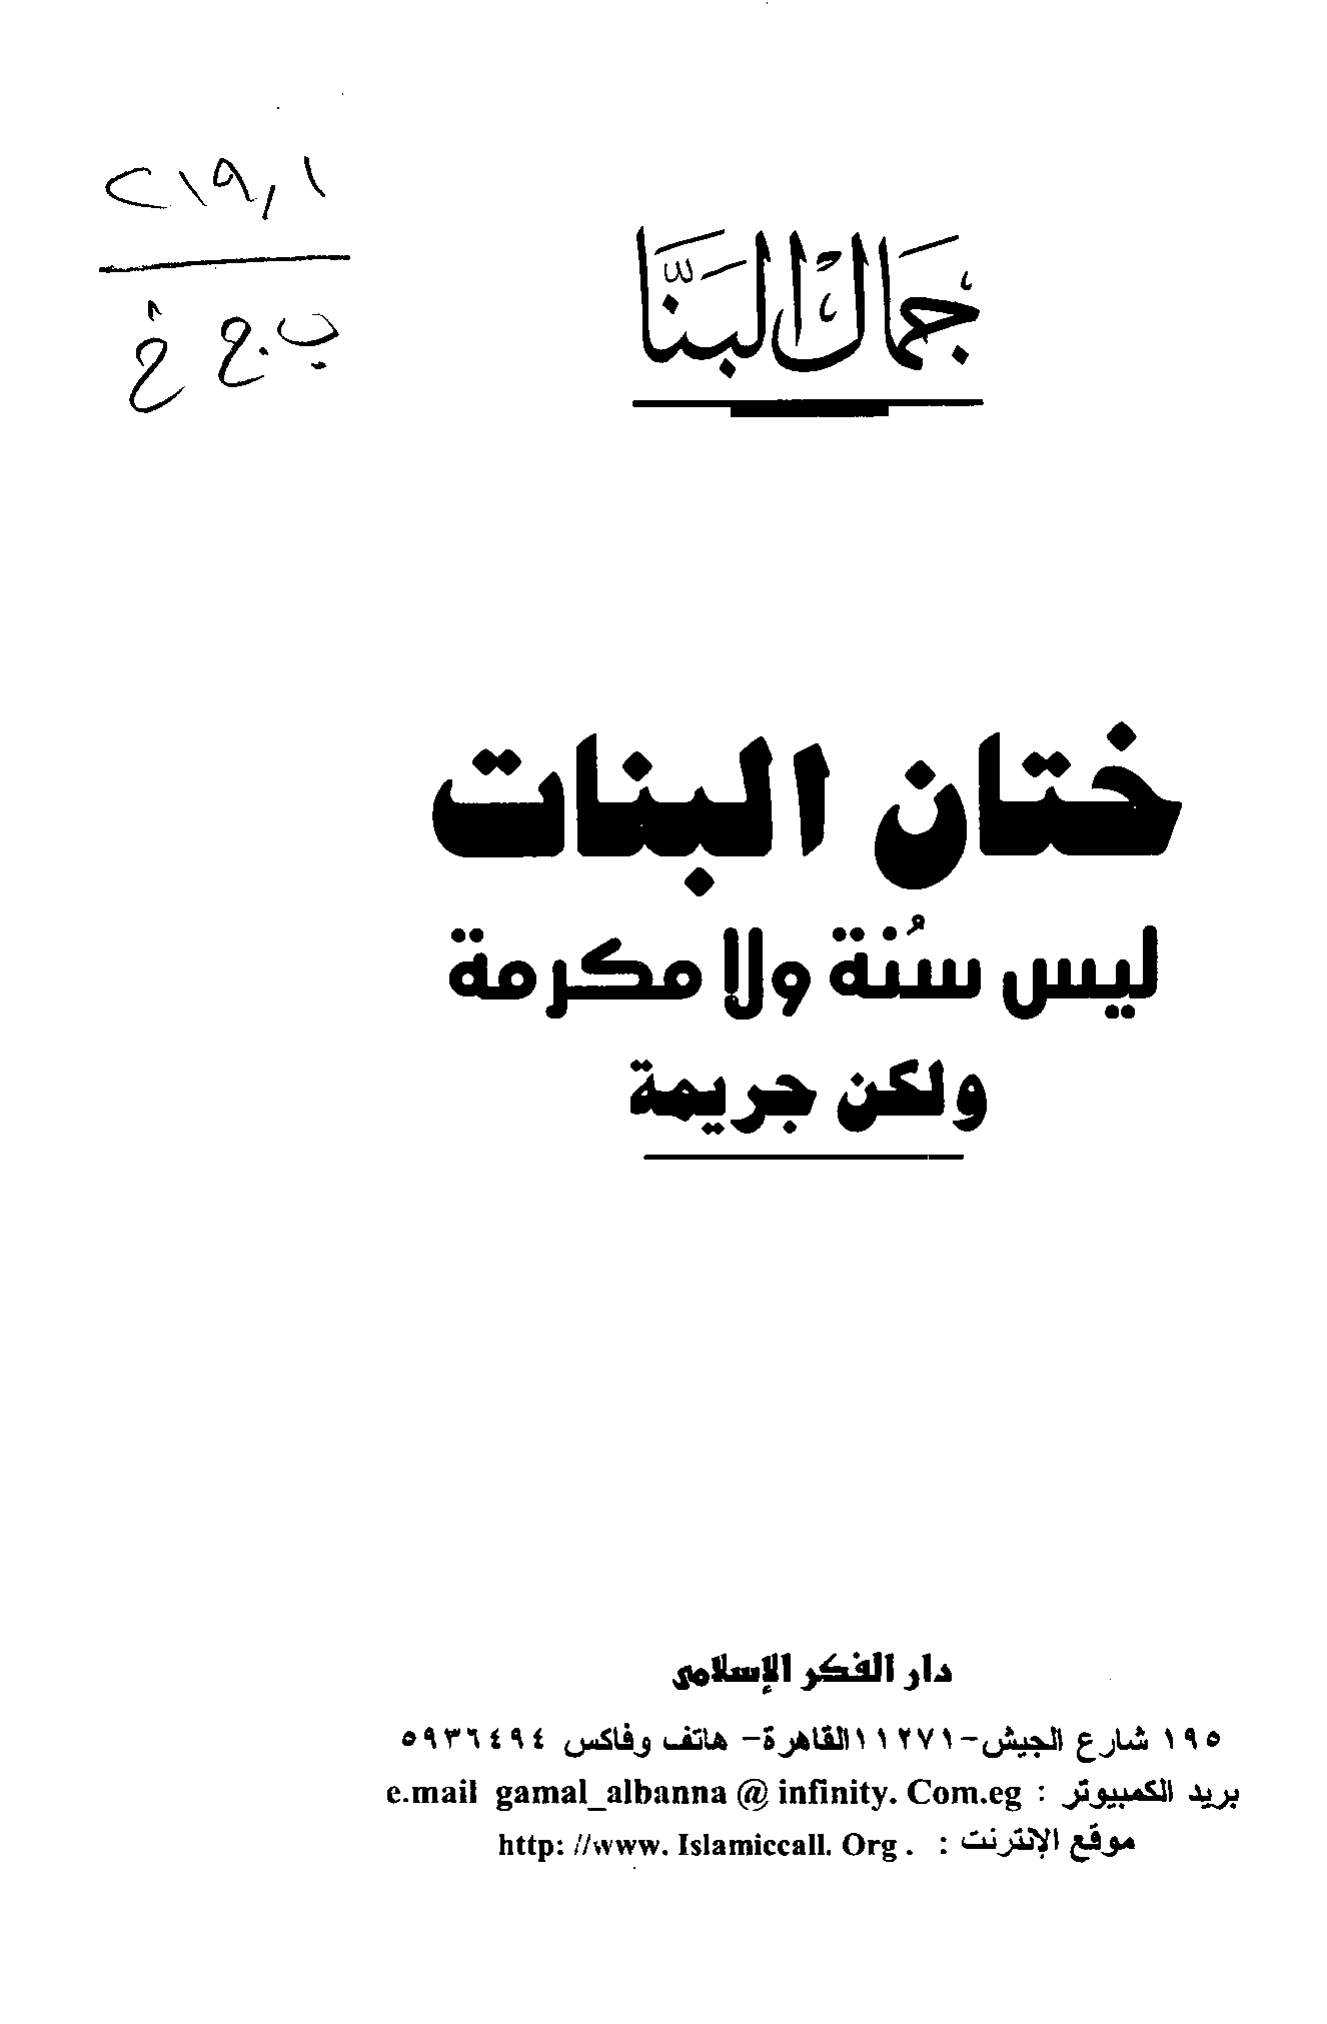 ٢١٩,١
ب.ج خ
جمال البنّا
ختان البنات
ليس سُنة ولا مكرمة
ولكن جريمة
دار الفكر الإسلامى
١٩٥ شارع الجيش-١١٢٧١القاهرة- هاتف وفاكس ٥٩٣٦٤٩٤
بريد الكمبيوتر : e.mail gamal_albanna @ infinity. Com.eg
موقع الإنترنت : http: //www. Islamiccall. Org .